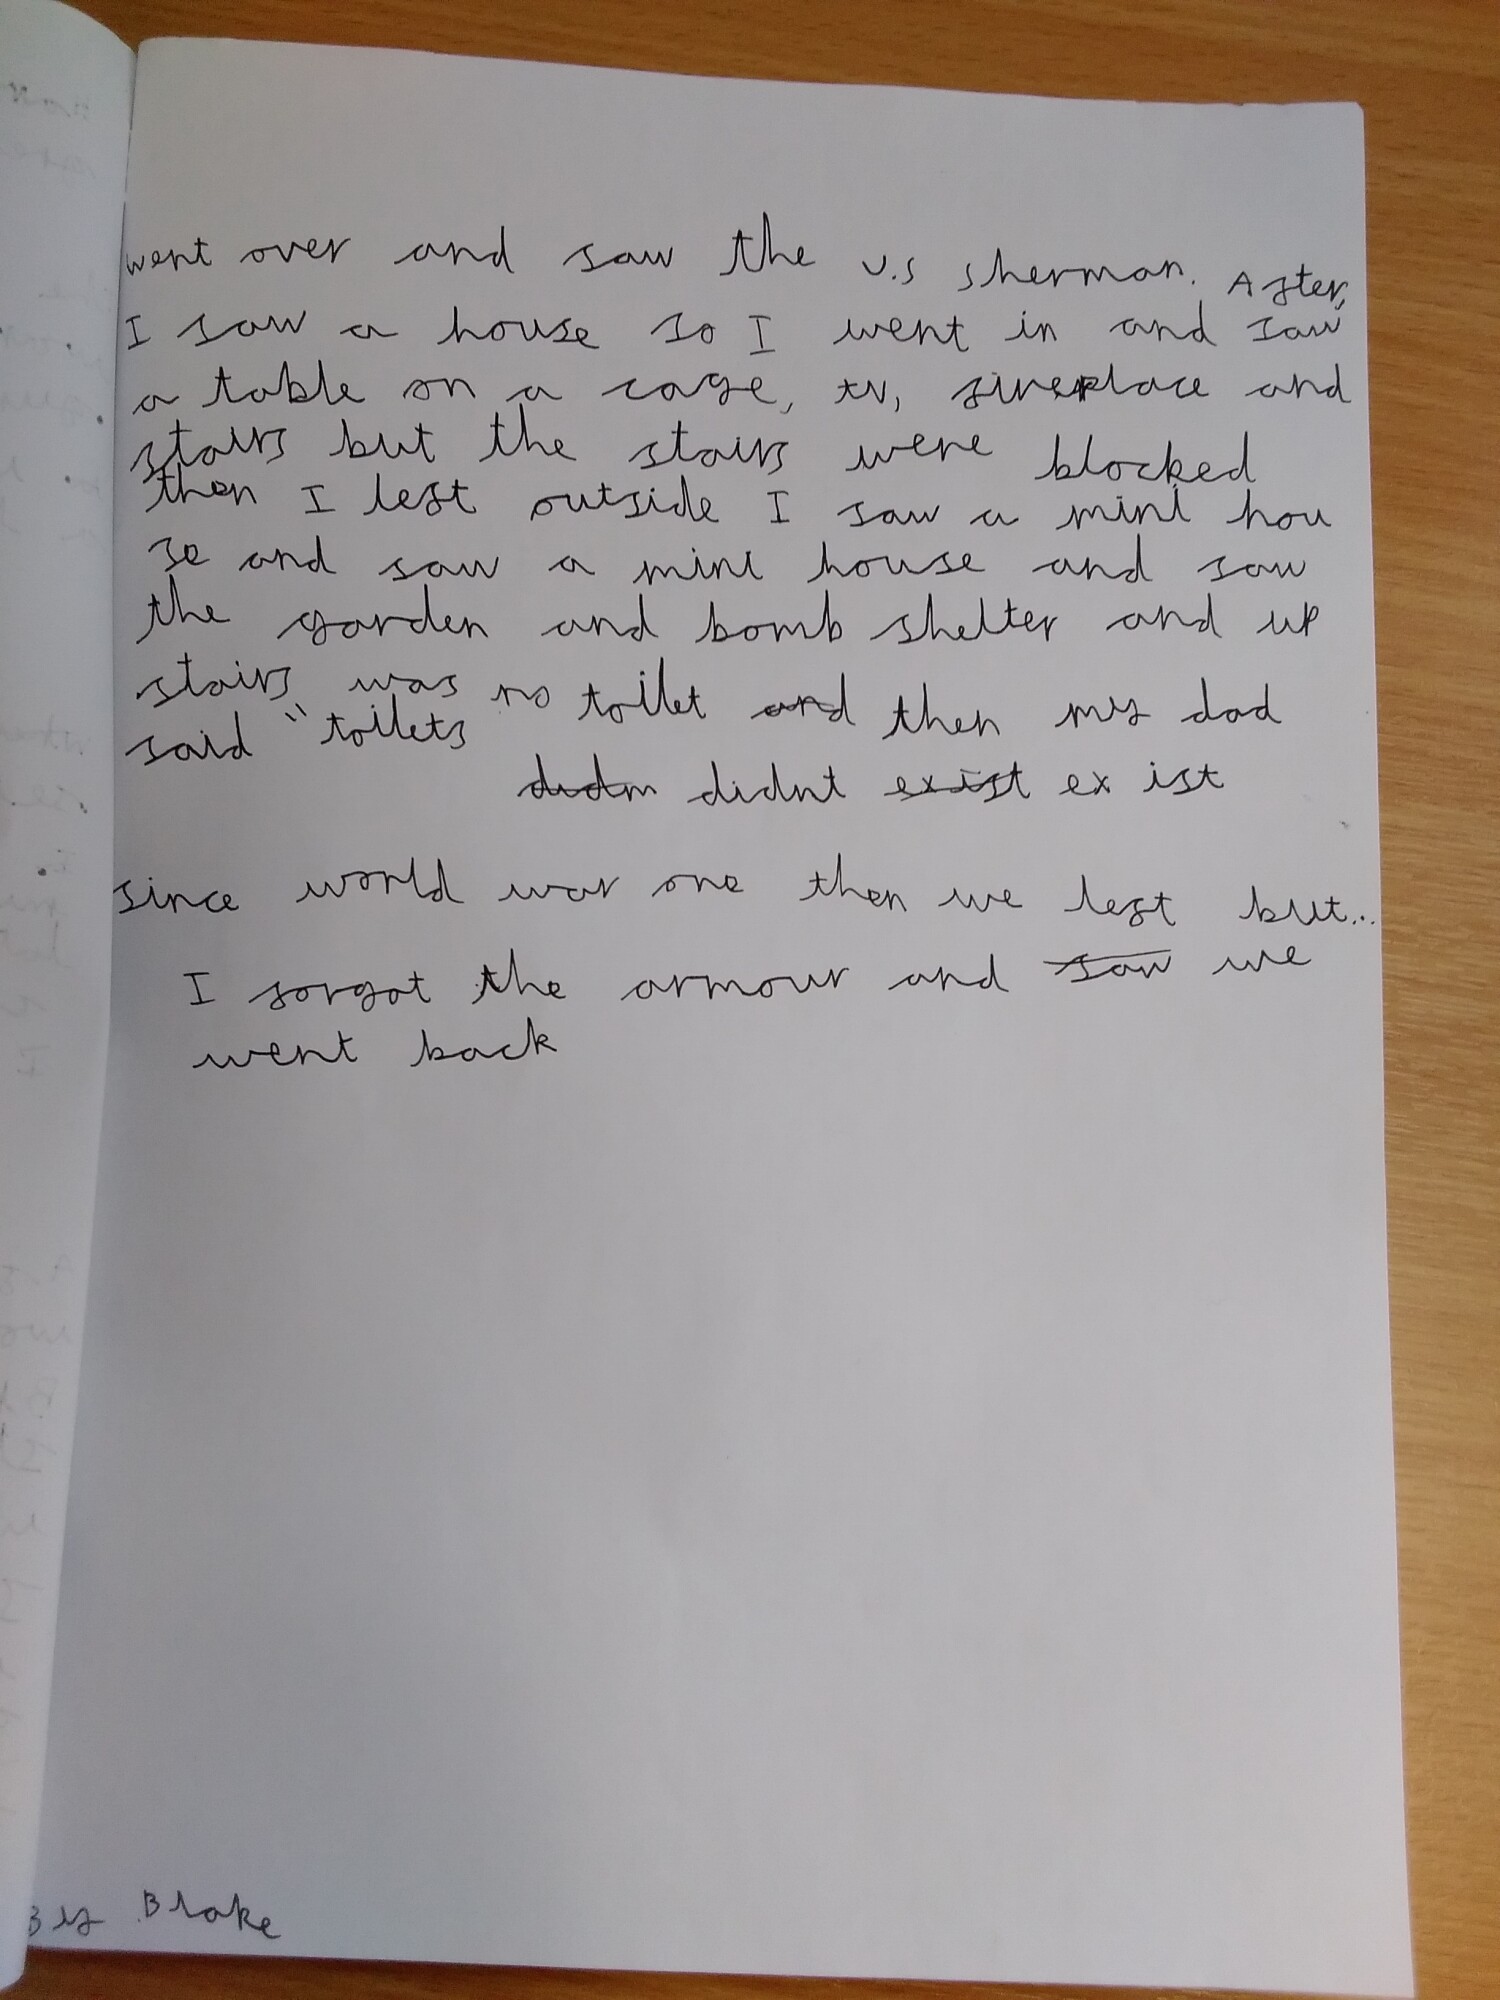 went over and saw the U.S sherman. After,
I saw a house so I went in and saw
a table on a cage, tv, fireplace and
stairs but the stairs were blocked
then I left outside I saw a mini hou
se and saw a mini house and saw
the garden and bomb shelter and up
stairs was no toilet and then my dad
said "toilets
didn didnt exist ex ist
since world war one then we left but...
I forgot the armour and saw we
went back
By Blake